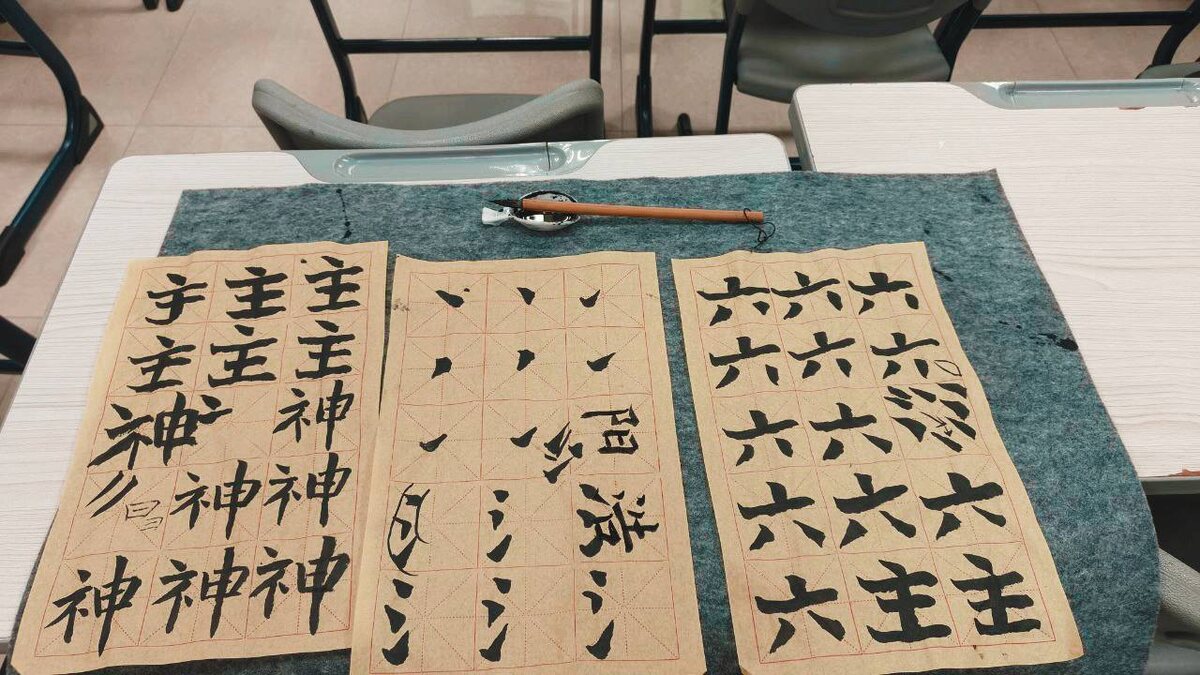 主主
主主主
神神
神神
神神神
阳
六六六
六六六
六六
六六六
六主主